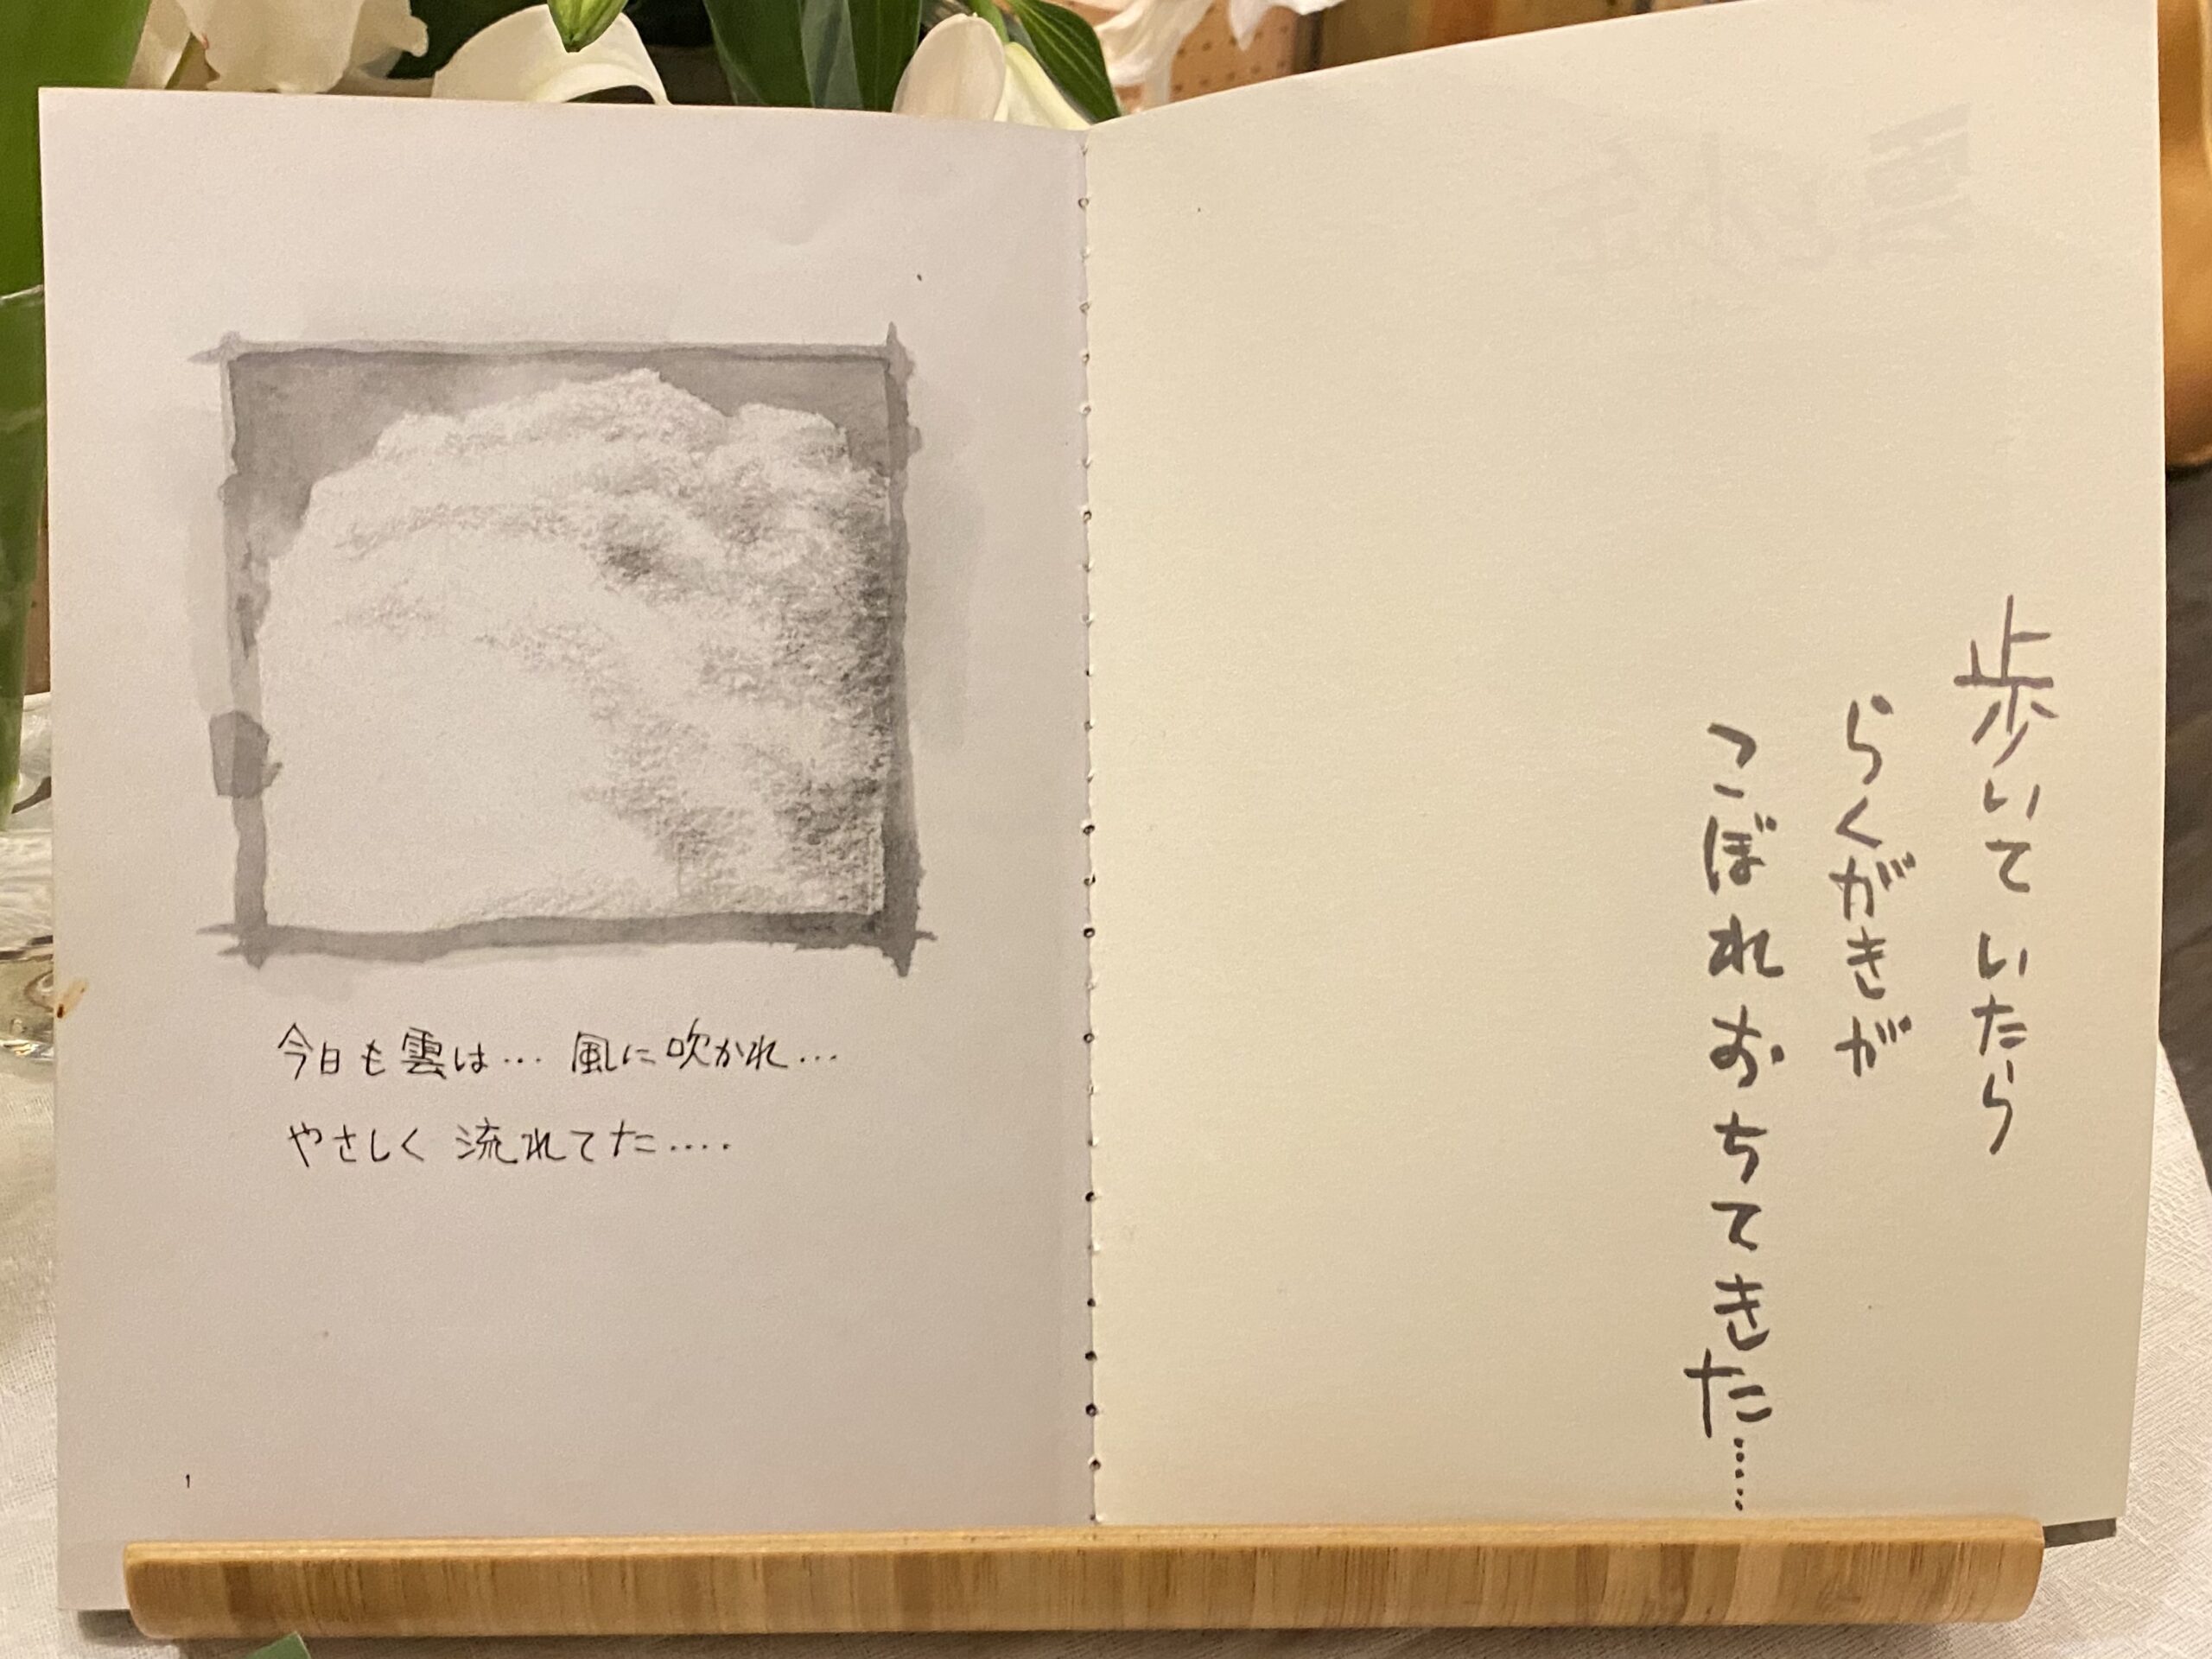 歩いていたら
らくがきが
こぼれおちてきた……
今日も雲は… 風に吹かれ…
やさしく 流れてた....
1